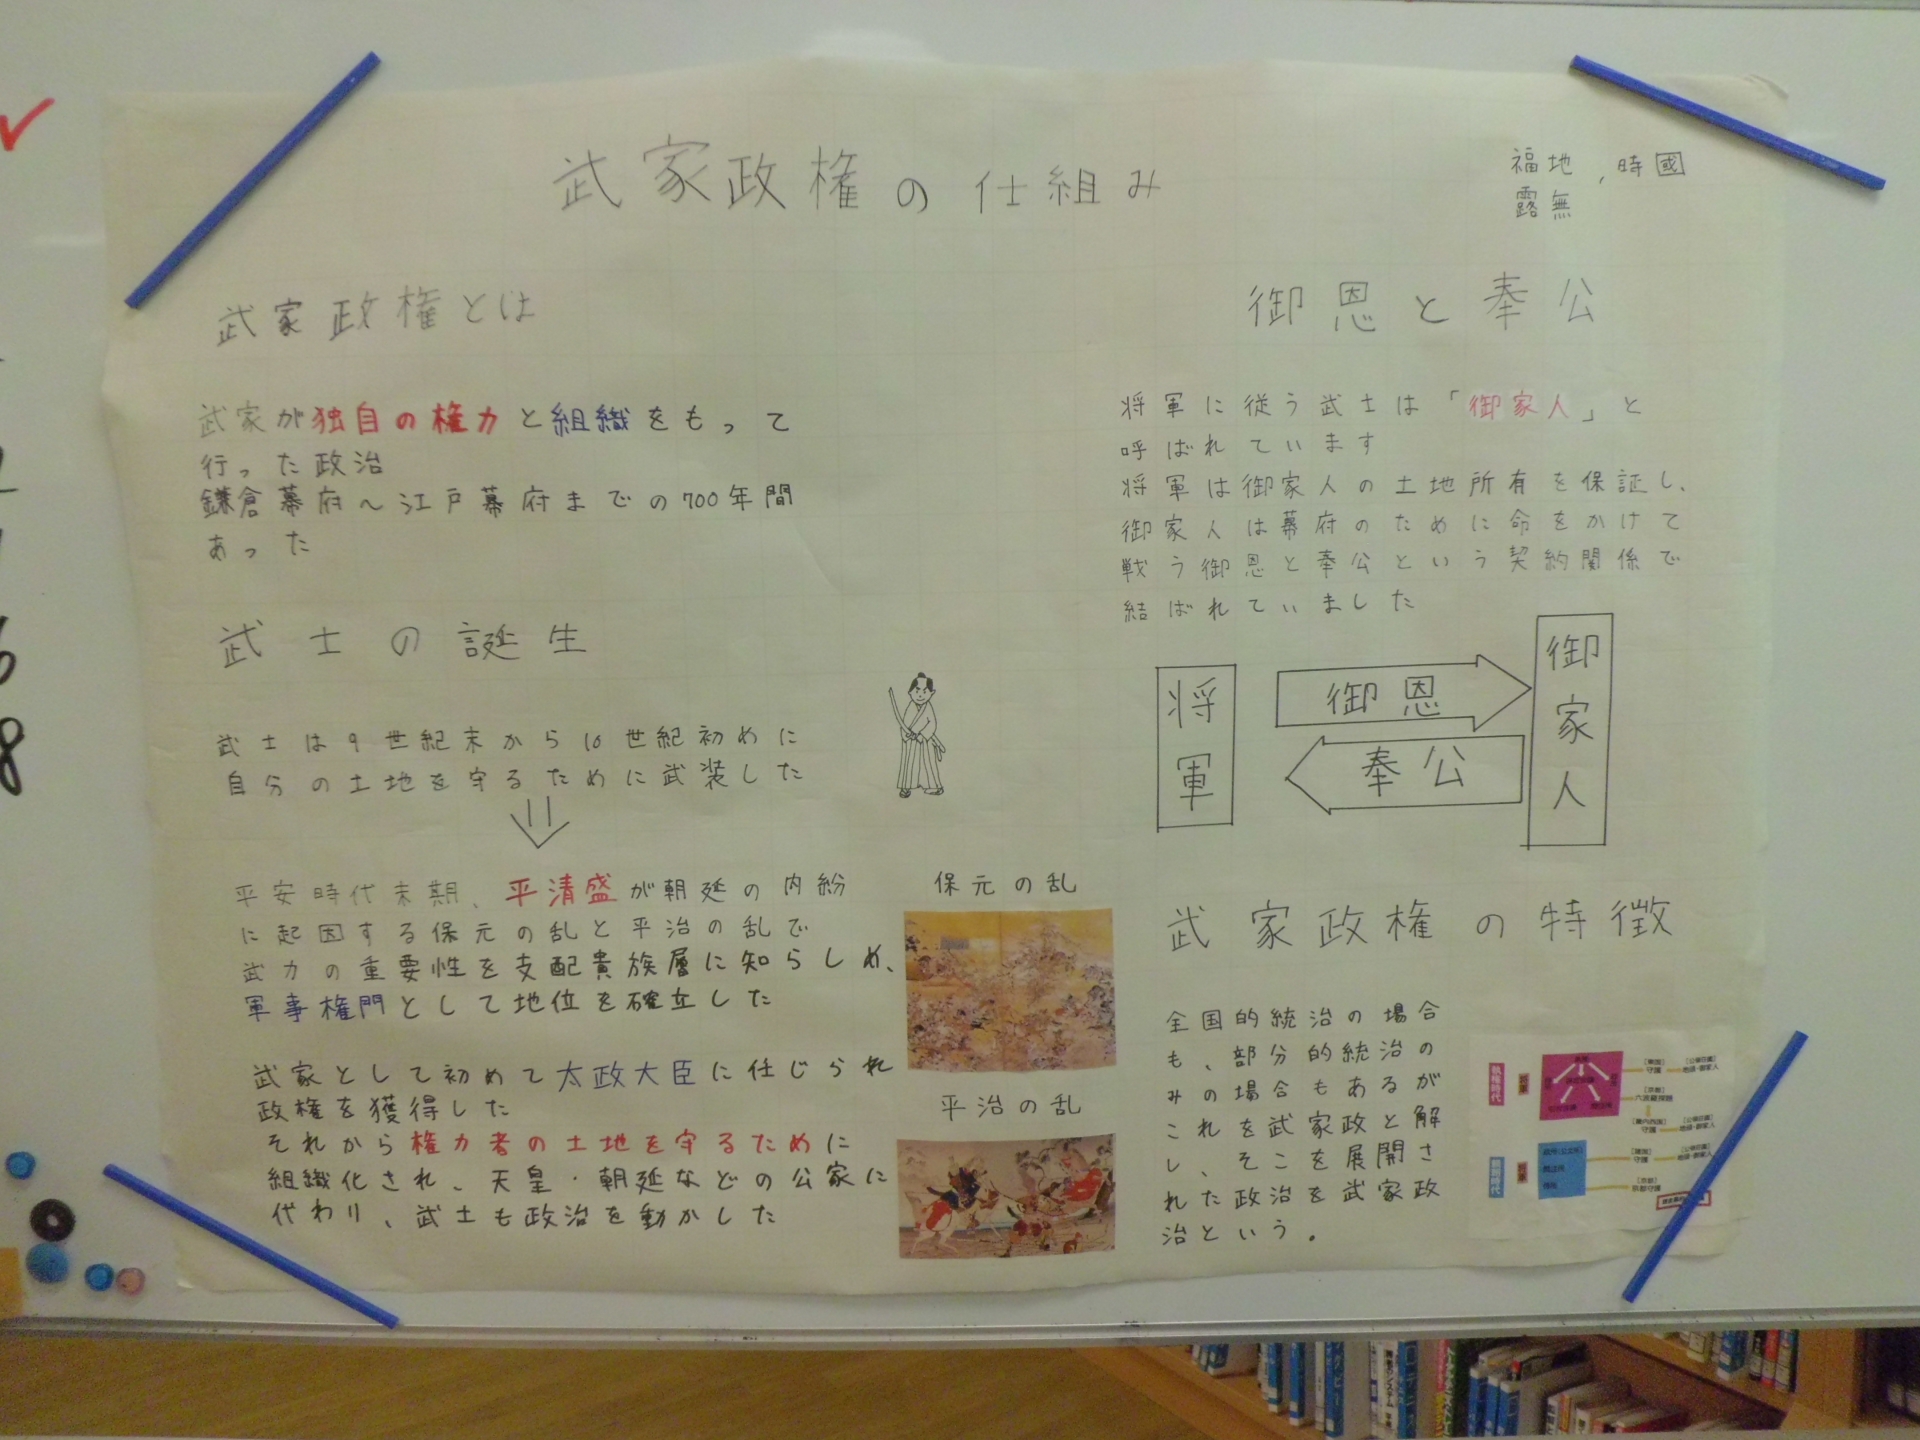 武家政権の仕組み
福地、時國
露無
武家政権とは
武家が独自の権力と組織をもって
行った政治
鎌倉幕府～江戸幕府までの700年間
あった
武士の誕生
武士は9世紀末から10世紀初めに
自分の土地を守るために武装した
平安時代末期、平清盛が朝廷の内紛
に起因する保元の乱と平治の乱で
武力の重要性を支配貴族層に知らしめ、
軍事権門として地位を確立した
武家として初めて太政大臣に任じられ
政権を獲得した
それから権力者の土地を守るために
組織化され、天皇・朝廷などの公家に
代わり、武士も政治を動かした
保元の乱
平治の乱
御恩と奉公
将軍に従う武士は「御家人」と
呼ばれています
将軍は御家人の土地所有を保証し、
御家人は幕府のために命をかけて
戦う御恩と奉公という契約関係で
結ばれていました
将軍
御恩
奉公
御家人
武家政権の特徴
全国的統治の場合
も、部分的統治の
みの場合もあるが
これを武家政と解
し、そこを展開さ
れた政治を武家政
治という。
執権時代